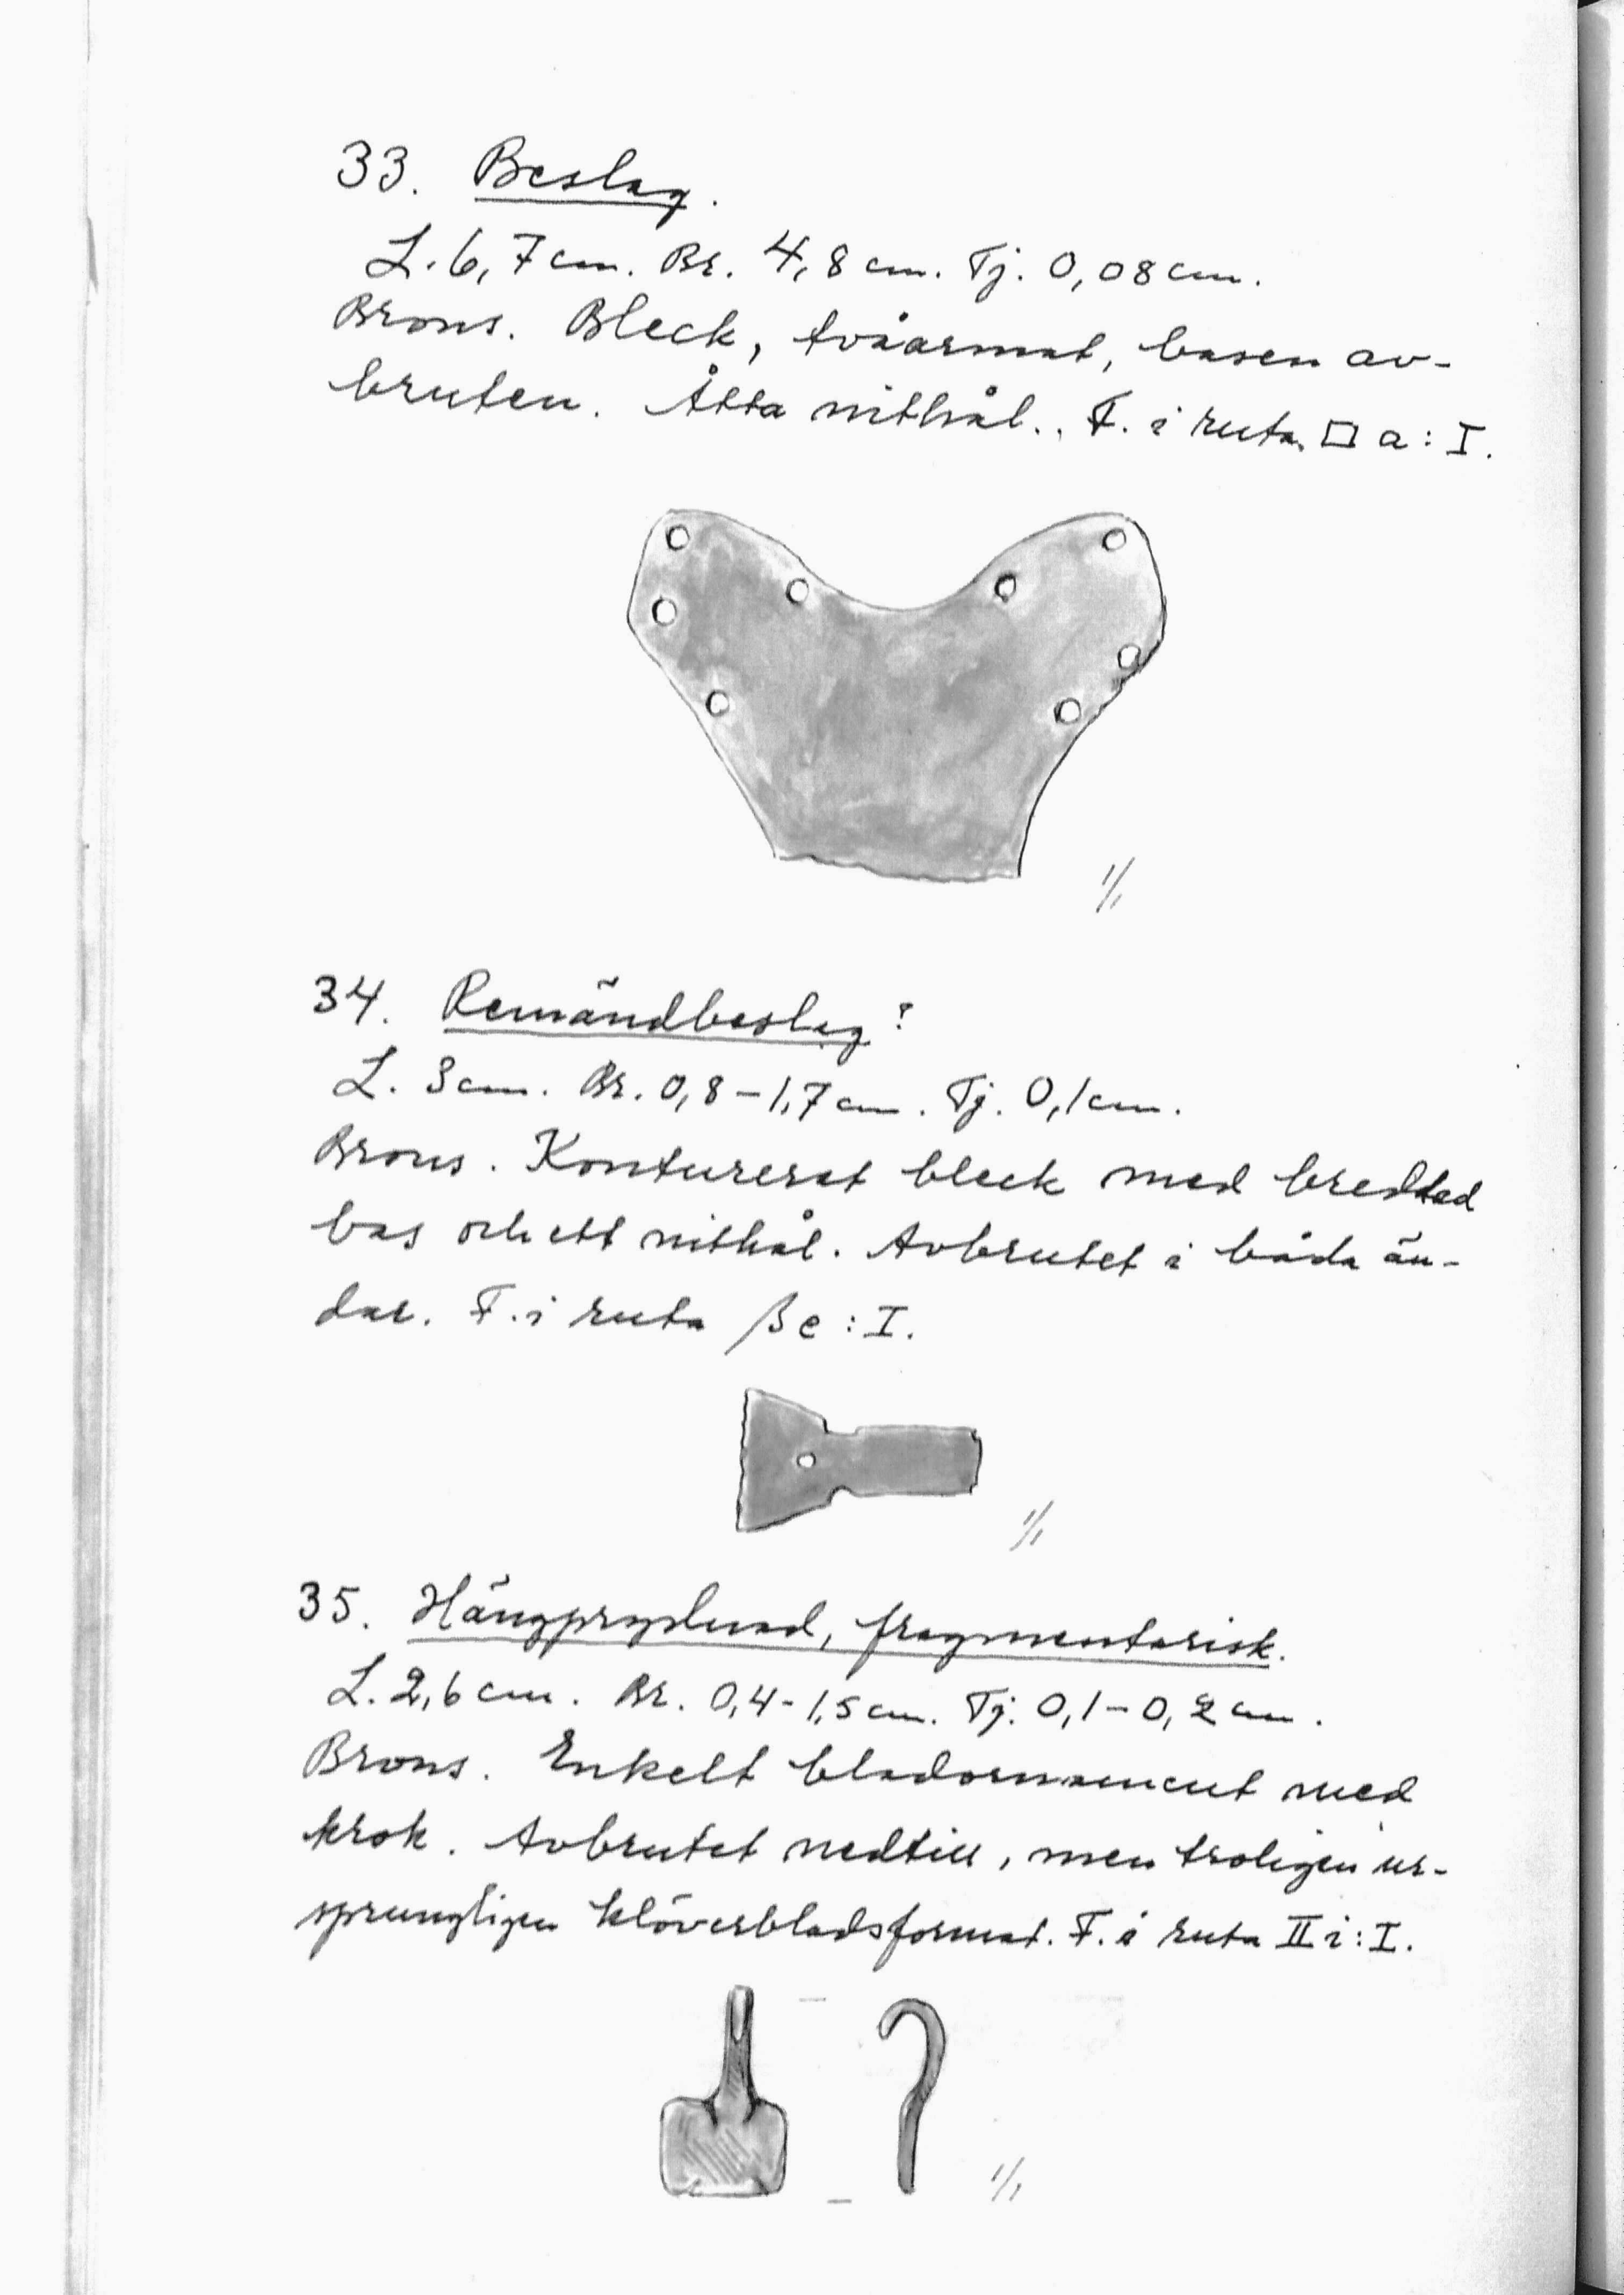 33. Beslag.
L. 6,7 cm. Br. 4,8 cm. Tj. 0,08 cm.
Brons. Bleck, tvåarmat, basen av-
bruten. Åtta nithål.. F. i ruta □ a : I.
1/1
34. Remändbeslag?
L. 3 cm. Br. 0,8 – 1,7 cm. Tj. 0,1 cm.
Brons. Konturerat bleck med breddad
bas och ett nithål. Avbrutet i båda än-
dar. F. i ruta β e : I.
1/1
35. Hängprydnad, fragmentarisk.
L. 2,6 cm. Br. 0,4 - 1,5 cm. Tj. 0,1 – 0,2 cm.
Brons. Enkelt bladornament med
krok. Avbrutet nedtill, men troligen ur-
sprungligen klöverbladsformat. F. i ruta II i : I.
1/1